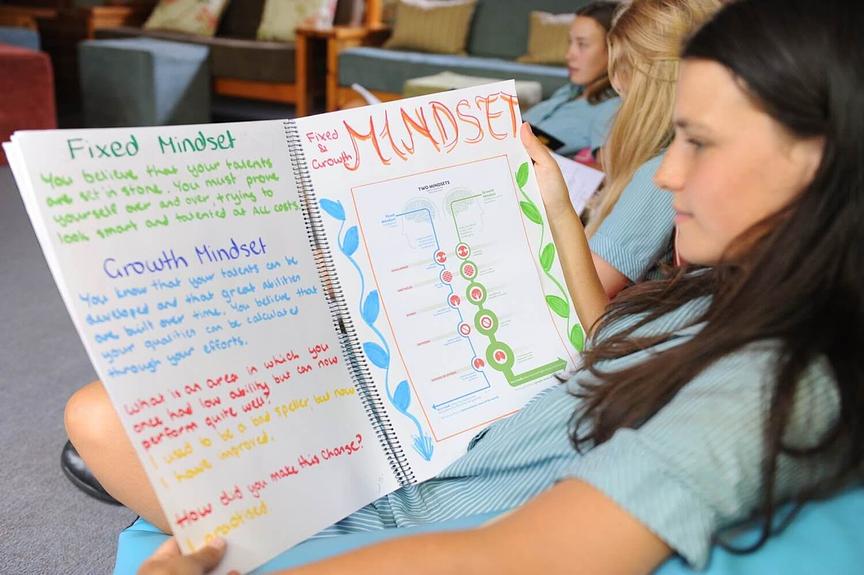 Fixed Mindset
You believe that your talents
are set in stone. You must prove
yourself over and over, trying to
look smart and talented at ALL costs.
Growth Mindset
You know that your talents can be
developed and that great abilities
are built over time. You believe that
your qualities can be calculated
through your efforts.
What is an area in which you
once had low ability but can now
perform quite well?
I used to be a bad speller, but now
I have improved.
How did you make this change?
I practised
Fixed
&
Growth
MINDSET
TWO MINDSETS